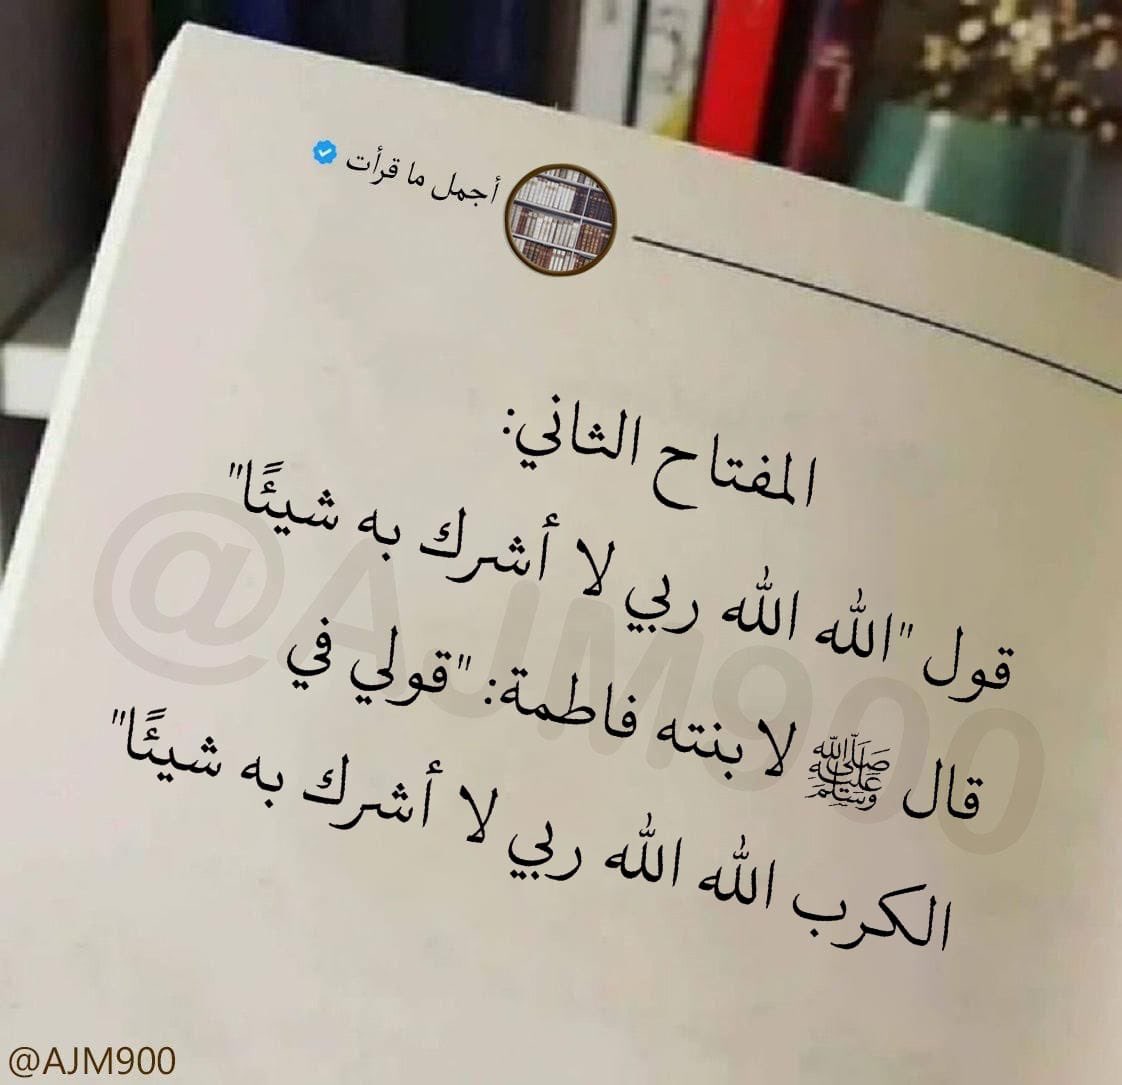 أجمل ما قرأت
المفتاح الثاني:
قول "الله الله ربي لا أشرك به شيئًا"
قال ﷺ لابنته فاطمة: "قولي في
الكرب الله الله ربي لا أشرك به شيئًا"
@AJM900
@AJM900